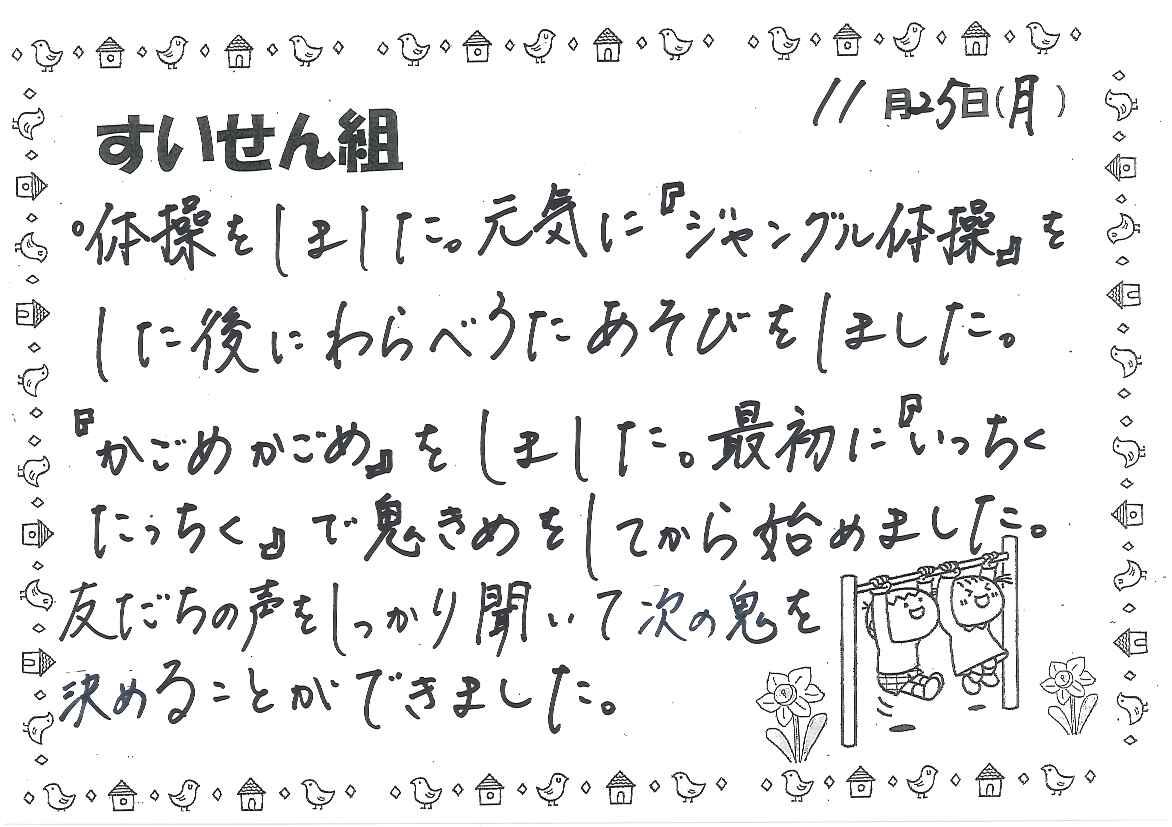 11月25日(月)
すいせん組
°体操をしました。元気に『ジャングル体操』を
した後にわらべうたあそびをしました。
『かごめかごめ』をしました。最初に『いっちく
たっちく』で鬼きめをしてから始めました。
友だちの声をしっかり聞いて次の鬼を
決めることができました。